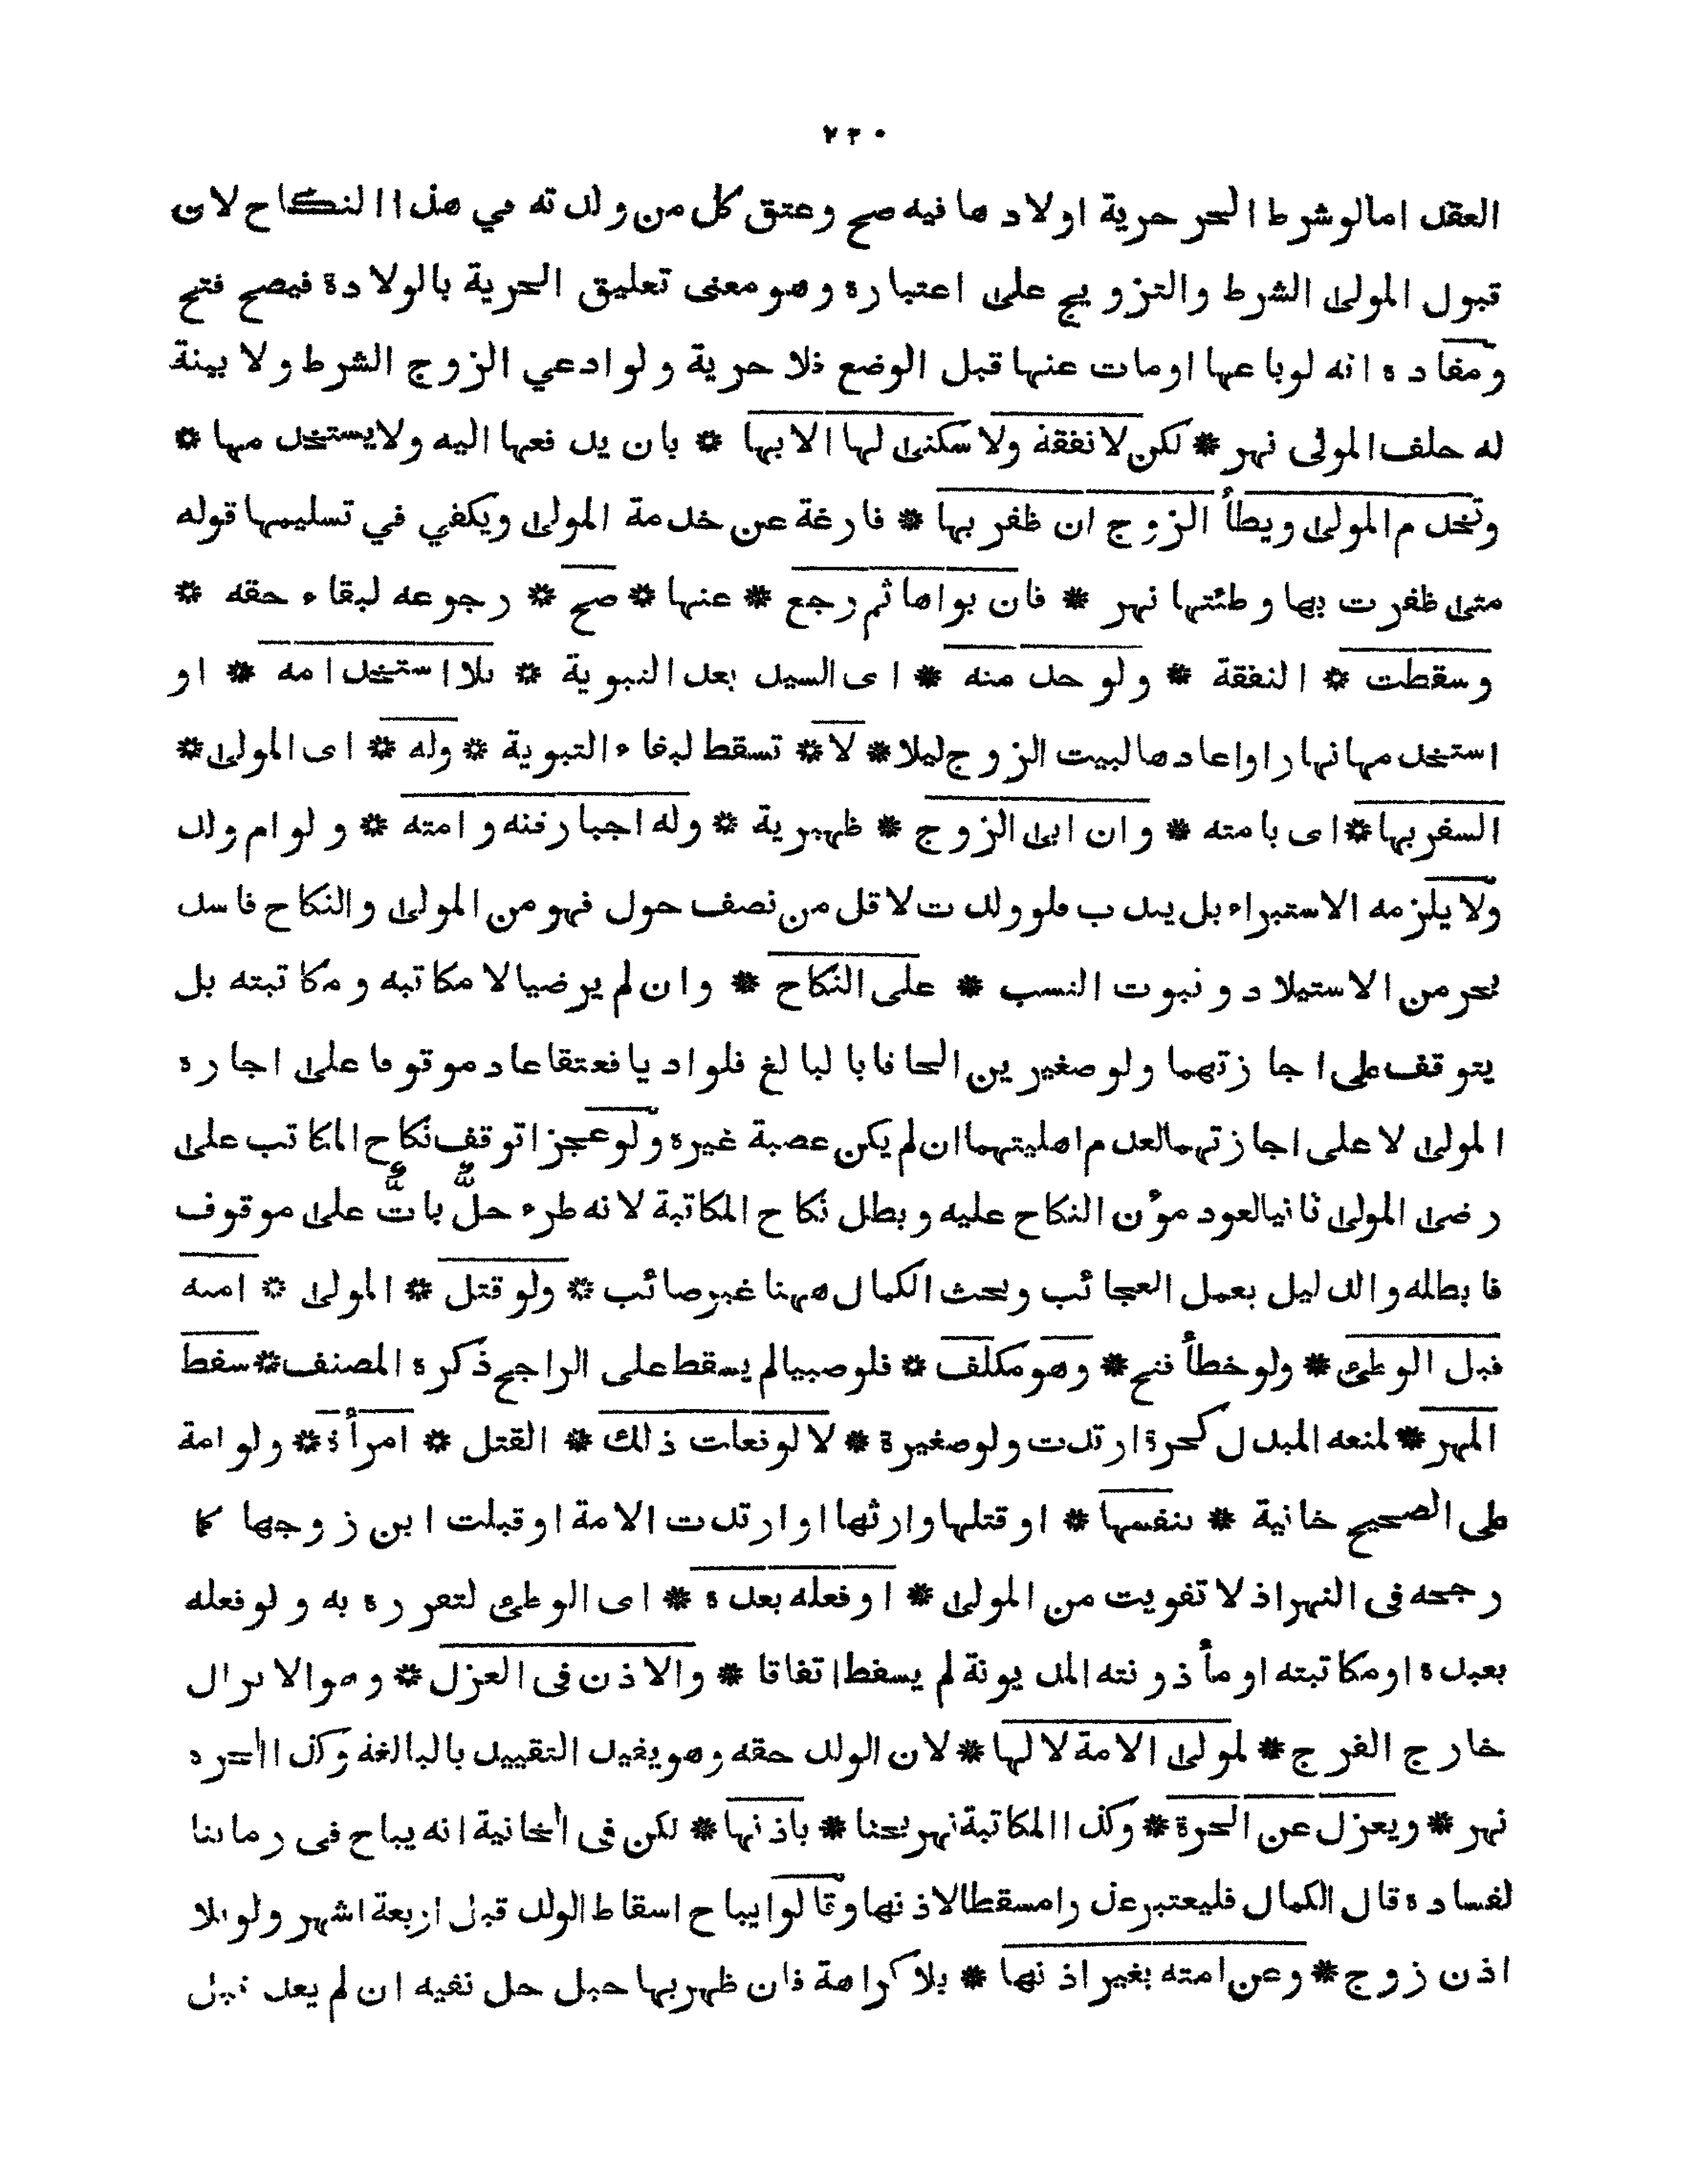 ٢٣٠
العقد امالوشرط الحر حرية اولادها فيه صح وعتق كل من ولدته في هذا النكاح لان
قبول المولى الشرط والتزويج على اعتباره وهومعنى تعليق الحرية بالولادة فيصح فتح
ومفاده انه لوباعها اومات عنها قبل الوضع فلا حرية ولو ادعي الزوج الشرط ولا بينة
له حلف المولى نهر * لكن لا نفقة ولا سكنى لها الا بها * بان يدفعها اليه ولايستخدمها *
وتخدم المولى ويطأ الزوج ان ظفر بها * فارغة عن خدمة المولى ويكفي في تسليمها قوله
متى ظفرت بها وطئتها نهر * فان بواها ثم رجع * عنها * صح * رجوعه لبقاء حقه *
وسقطت * النفقة * ولو خدمته * اى السيد بعد التبوية * بلا استخدامه * او
استخدمها نهارا واعادها لبيت الزوج ليلا * لا * تسقط لبقاء التبوية * وله * اى المولى *
السفر بها * اى بامته * وان ابى الزوج * ظهيرية * وله اجبار قنه وامته * ولو ام ولد
ولا يلزمه الاستبراء بل يندب فلو ولدت لاقل من نصف حول فهو من المولى والنكاح فاسد
بحر من الاستيلاد وثبوت النسب * على النكاح * وان لم يرضيا لا مكاتبه ومكاتبته بل
يتوقف على اجازتهما ولو صغيرين الحاقا بالبالغ فلو اديا فعتقا عاد موقوفا على اجازة
المولى لا على اجازتهما لعدم اهليتهما ان لم يكن عصبة غيره ولو عجزا توقف نكاح المكاتب على
رضى المولى ثانيا لعود مؤن النكاح عليه وبطل نكاح المكاتبة لانه طرء حلٌّ باتٌّ على موقوف
فابطله والدليل بعمل العجائب وبحث الكمال ههنا غير صائب * ولو قتل * المولى * امته
قبل الوطئ * ولو خطأ فتح * وهو مكلف * فلو صبيا لم يسقط على الراجح ذكره المصنف * سقط
المهر * لمنعه المبدل كحرة ارتدت ولو صغيرة * لا لو فعلت ذلك * القتل * امرأة * ولو امة
على الصحيح خانية * بنفسها * او قتلها وارثها او ارتدت الامة او قبلت ابن زوجها كما
رجحه فى النهر اذ لا تفويت من المولى * او فعله بعده * اى الوطئ لتقرره به ولو فعله
بعبده او مكاتبته او مأذونته المديونة لم يسقط اتفاقا * والاذن فى العزل * وهو الانزال
خارج الفرج * لمولى الامة لا لها * لان الولد حقه وهو يفيد التقييد بالبالغة وكذا الحرة
نهر * ويعزل عن الحرة * وكذا المكاتبة نهر بحثا * باذنها * لكن فى الخانية انه يباح فى زماننا
لفساده قال الكمال فليعتبر عذرا مسقطا لاذنها وقالوا يباح اسقاط الولد قبل اربعة اشهر ولو بلا
اذن زوج * وعن امته بغير اذنها * بلا كراهة فان ظهر بها حبل حل نفيه ان لم يعد قبل